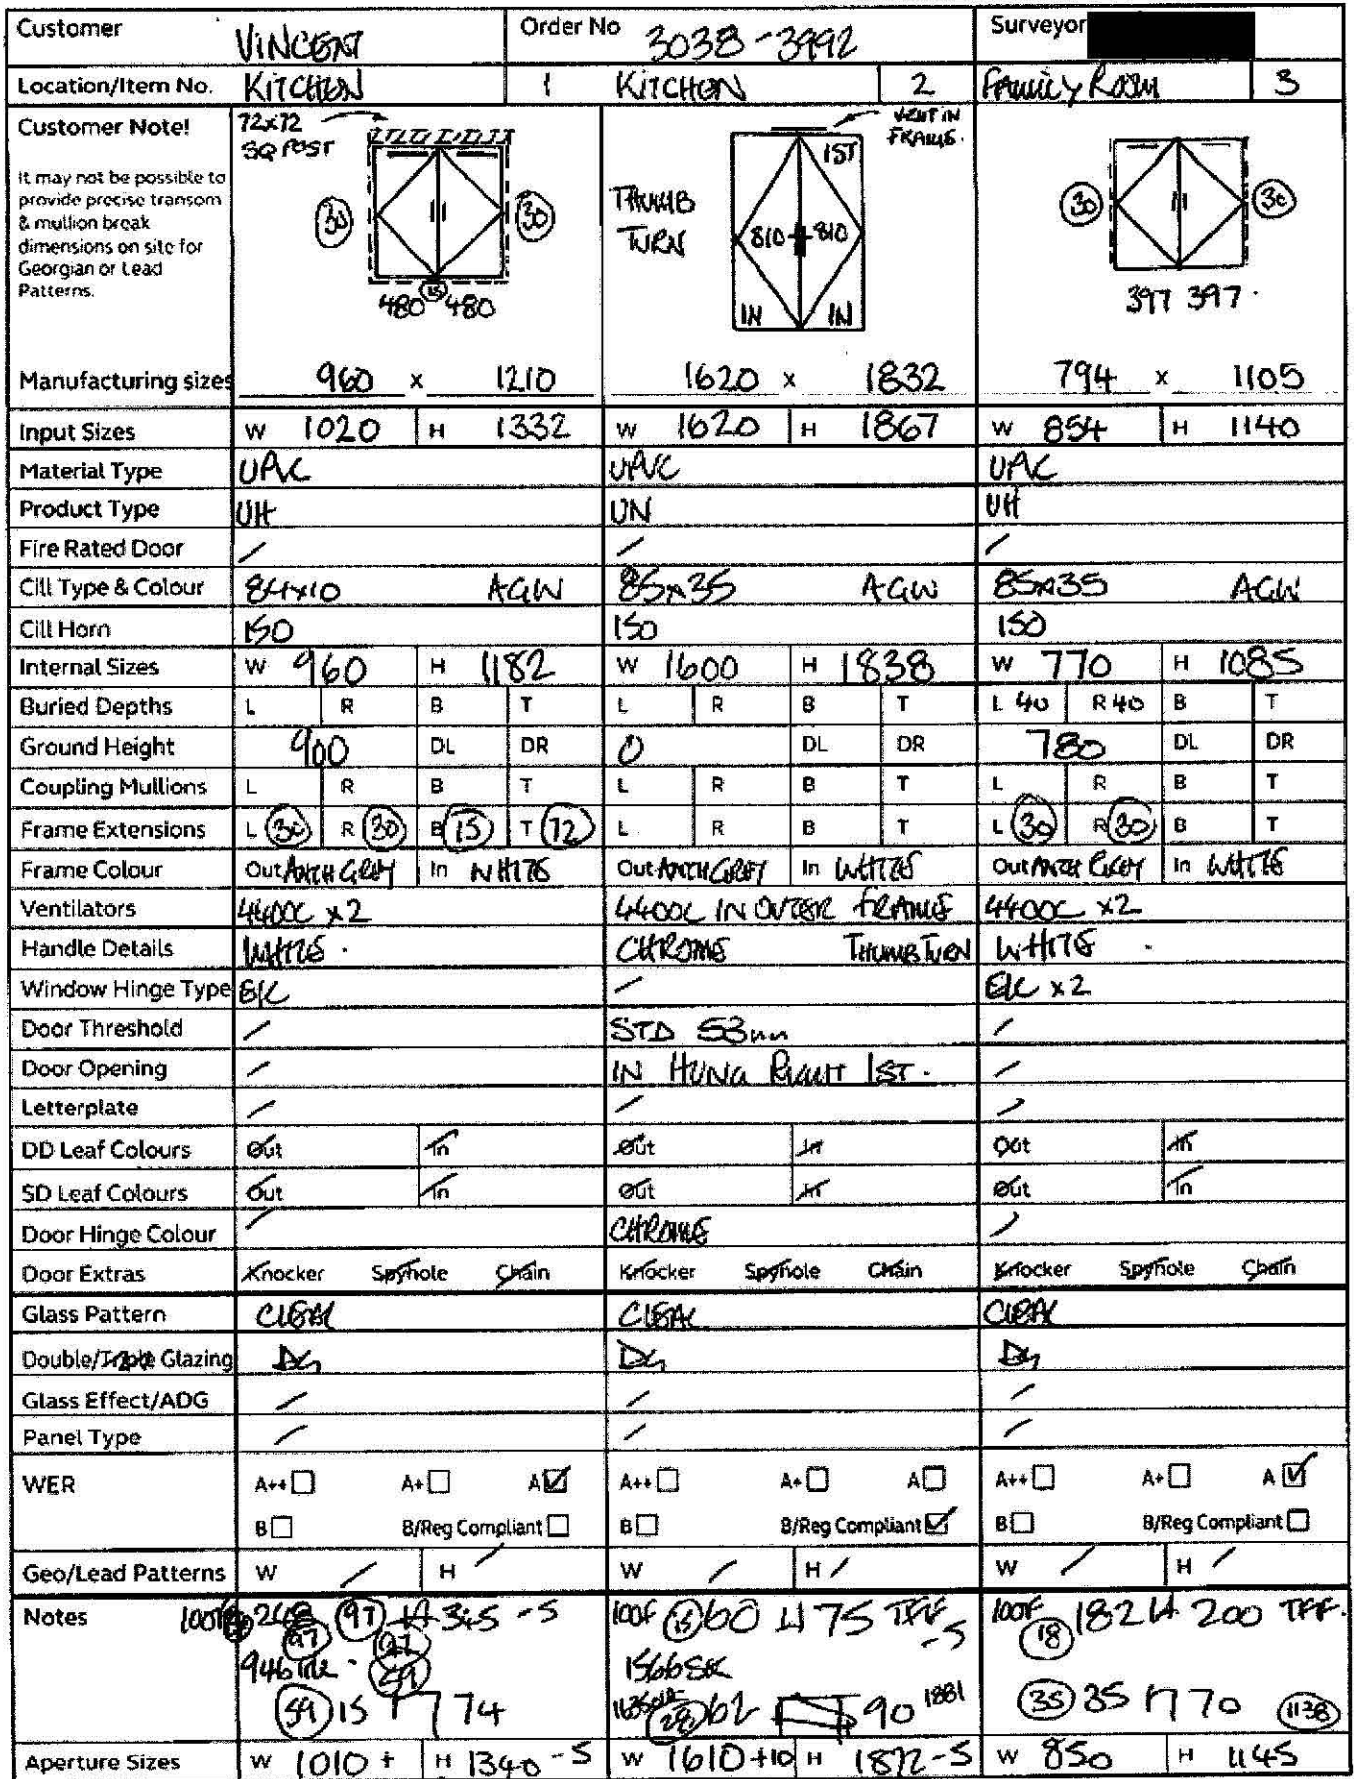 Customer VINCENT Order No 3038-3992 Surveyor
Location/Item No. KITCHEN 1 KITCHEN 2 FAMILY ROOM 3
Customer Note!
It may not be possible to
provide precise transom
& mullion break
dimensions on site for
Georgian or Lead
Patterns.
72x72
SQ POST
30 30
15
480 480
VENT IN
FRAME.
THUMB
TURN
1ST
810 810
IN IN
30 30
397 397.
Manufacturing sizes 960 x 1210 1620 x 1832 794 x 1105
Input Sizes W 1020 H 1332 W 1620 H 1867 W 854 H 1140
Material Type UPVC UPVC UPVC
Product Type UH UN UH
Fire Rated Door / / /
Cill Type & Colour 84x10 AGW 85x35 AGW 85x35 AGW
Cill Horn 150 150 150
Internal Sizes W 960 H 1182 W 1600 H 1838 W 770 H 1085
Buried Depths L R B T L R B T L 40 R 40 B T
Ground Height 900 DL DR 0 DL DR 780 DL DR
Coupling Mullions L R B T L R B T L R B T
Frame Extensions L 30 R 30 B 15 T 72 L R B T L 30 R 30 B T
Frame Colour Out ANTH GREY In WHITE Out ANTH GREY In WHITE Out ANTH GREY In WHITE
Ventilators 4400C x2 4400C IN OUTER FRAME 4400C x2
Handle Details WHITE. CHROME THUMBTURN WHITE
Window Hinge Type E/C / E/C x2
Door Threshold / STD 53mm /
Door Opening / IN HUNG RIGHT 1ST. /
Letterplate / / /
DD Leaf Colours Out In Out In Out In
SD Leaf Colours Out In Out In Out In
Door Hinge Colour / CHROME /
Door Extras Knocker Spyhole Chain Knocker Spyhole Chain Knocker Spyhole Chain
Glass Pattern CLEAR CLEAR CLEAR
Double/Triple Glazing DG DG DG
Glass Effect/ADG / / /
Panel Type / / /
WER A++ A+ A A++ A+ A A++ A+ A
B B/Reg Compliant B B/Reg Compliant B B/Reg Compliant
Geo/Lead Patterns W / H / W / H / W / H /
Notes 268 97 345 -5 100F 15 60 75 TFF 100F 18 182 200 TFF.
97 97 -5
946 59 1566
59 15 74 28 62 90 1881 35 35 70 1138
Aperture Sizes W 1010 + H 1340 -5 W 1610 +10 H 1872 -5 W 850 H 1145